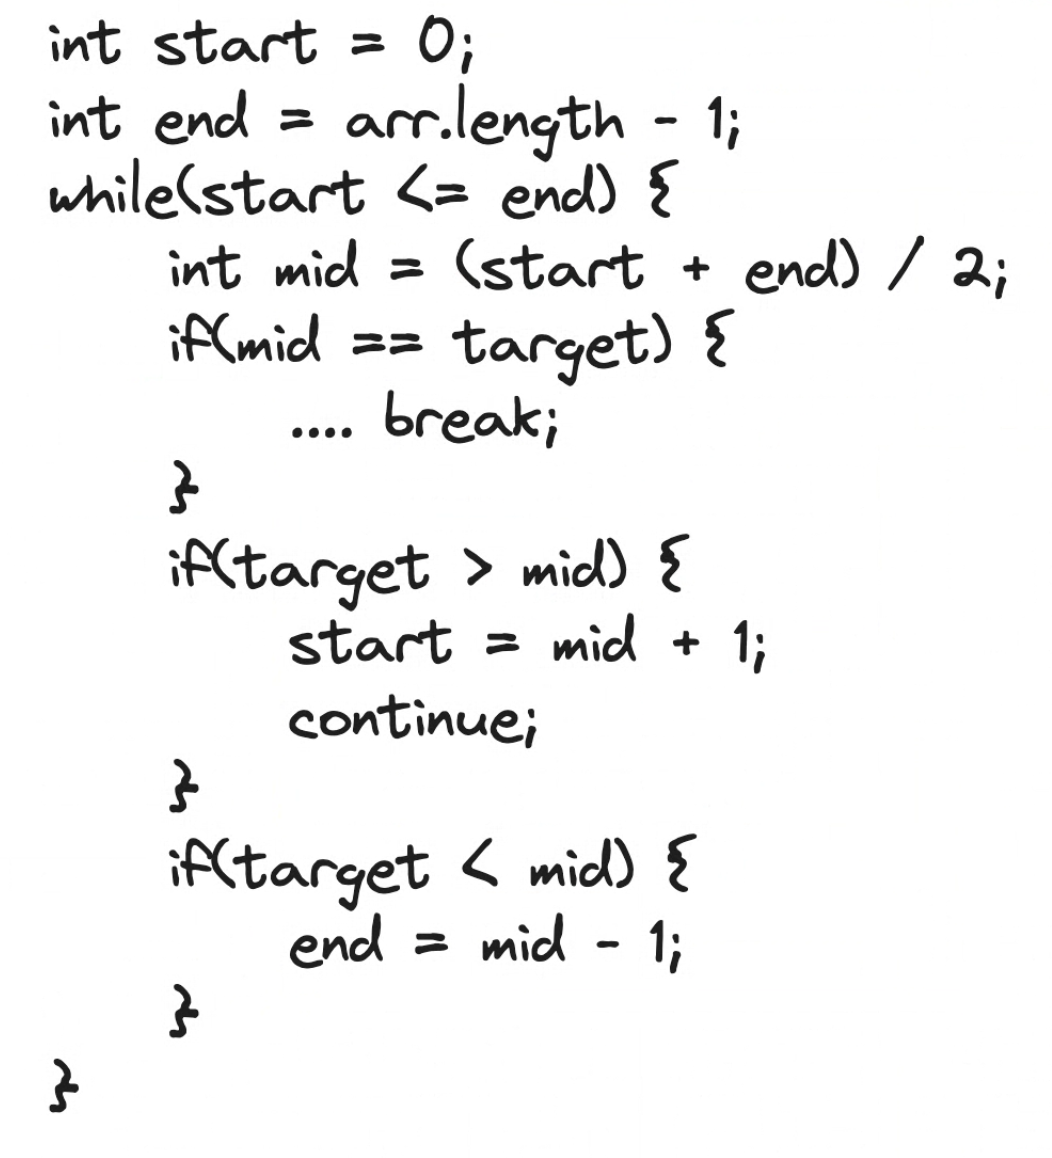 int start = 0;
int end = arr.length - 1;
while(start <= end) {
    int mid = (start + end) / 2;
    if(mid == target) {
        .... break;
    }
    if(target > mid) {
        start = mid + 1;
        continue;
    }
    if(target < mid) {
        end = mid - 1;
    }
}